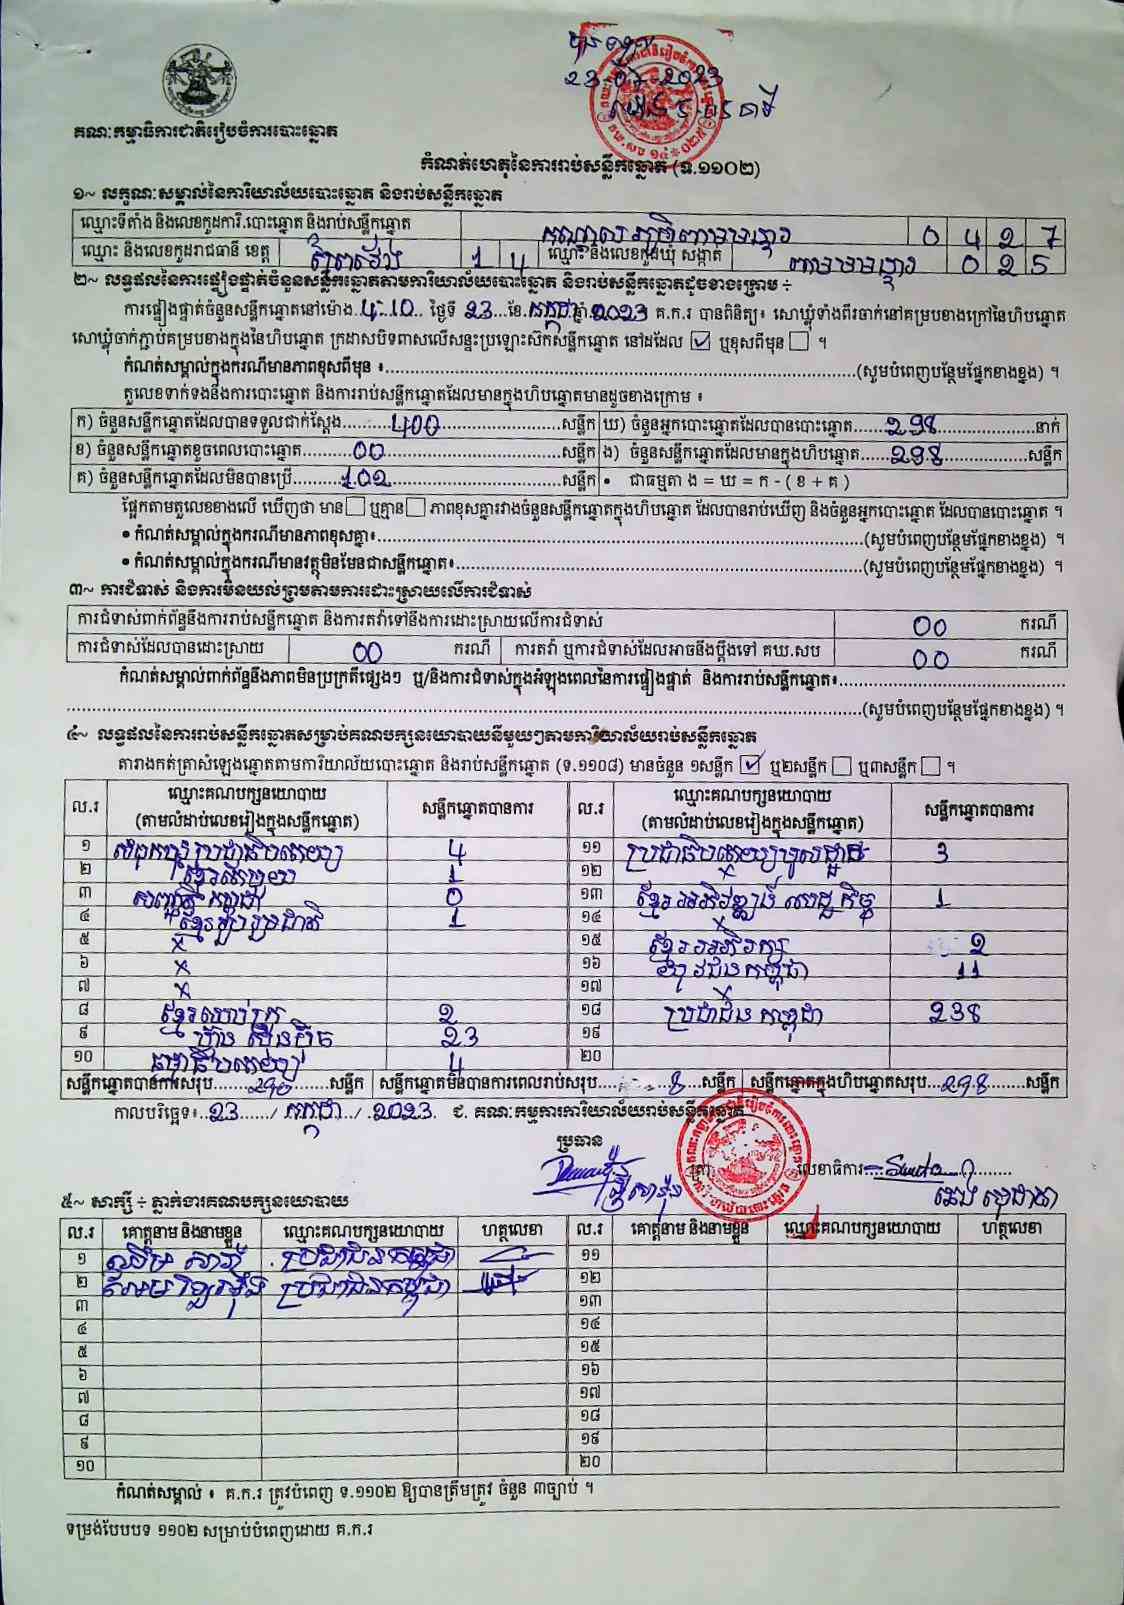 គណៈកម្មាធិការជាតិរៀបចំការបោះឆ្នោត
23-07-2023
កំណត់ហេតុនៃការរាប់សន្លឹកឆ្នោត (ទ.១១០២)
១~ លក្ខណៈសម្គាល់នៃការិយាល័យបោះឆ្នោត និងរាប់សន្លឹកឆ្នោត
ឈ្មោះទីតាំង និងលេខកូដការិ.បោះឆ្នោត និងរាប់សន្លឹកឆ្នោត 0 4 2 7
ឈ្មោះ និងលេខកូដរាជធានី ខេត្ត ព្រៃវែង 1 4 ឈ្មោះ និងលេខកូដឃុំ សង្កាត់ 0 2 5
២~ លទ្ធផលនៃការផ្ទៀងផ្ទាត់ចំនួនសន្លឹកឆ្នោតតាមការិយាល័យបោះឆ្នោត និងរាប់សន្លឹកឆ្នោតដូចខាងក្រោម ÷
ការផ្ទៀងផ្ទាត់ចំនួនសន្លឹកឆ្នោតនៅម៉ោង 4:10 ថ្ងៃទី 23 ខែ កក្កដា ឆ្នាំ 2023 គ.ក.រ បានពិនិត្យ៖ សោឃ្លុំទាំងពីរចាក់នៅគម្របខាងក្រៅនៃហិបឆ្នោត
សោឃ្លុំចាក់ភ្ជាប់គម្របខាងក្នុងនៃហិបឆ្នោត ក្រដាសបិទពាសលើសន្ទះប្រឡោះស៊កសន្លឹកឆ្នោត នៅដដែល ☑ ឬខុសពីមុន ☐ ។
កំណត់សម្គាល់ក្នុងករណីមានភាពខុសពីមុន ៖ (សូមបំពេញបន្ថែមផ្នែកខាងខ្នង) ។
តួលេខទាក់ទងនឹងការបោះឆ្នោត និងការរាប់សន្លឹកឆ្នោតដែលមានក្នុងហិបឆ្នោតមានដូចខាងក្រោម ៖
ក) ចំនួនសន្លឹកឆ្នោតដែលបានទទួលជាក់ស្តែង 400 សន្លឹក ឃ) ចំនួនអ្នកបោះឆ្នោតដែលបានបោះឆ្នោត 298 នាក់
ខ) ចំនួនសន្លឹកឆ្នោតខូចពេលបោះឆ្នោត 00 សន្លឹក ង) ចំនួនសន្លឹកឆ្នោតដែលមានក្នុងហិបឆ្នោត 298 សន្លឹក
គ) ចំនួនសន្លឹកឆ្នោតដែលមិនបានប្រើ 102 សន្លឹក • ជាធម្មតា ង = ឃ = ក - ( ខ + គ )
ផ្អែកតាមតួលេខខាងលើ ឃើញថា មាន ☐ ឬគ្មាន ☐ ភាពខុសគ្នារវាងចំនួនសន្លឹកឆ្នោតក្នុងហិបឆ្នោត ដែលបានរាប់ឃើញ និងចំនួនអ្នកបោះឆ្នោត ដែលបានបោះឆ្នោត ។
• កំណត់សម្គាល់ក្នុងករណីមានភាពខុសគ្នា៖ (សូមបំពេញបន្ថែមផ្នែកខាងខ្នង) ។
• កំណត់សម្គាល់ក្នុងករណីមានវត្ថុមិនមែនជាសន្លឹកឆ្នោត៖ (សូមបំពេញបន្ថែមផ្នែកខាងខ្នង) ។
៣~ ការជំទាស់ និងការមិនយល់ព្រមតាមការដោះស្រាយលើការជំទាស់
ការជំទាស់ពាក់ព័ន្ធនឹងការរាប់សន្លឹកឆ្នោត និងការតវ៉ាទៅនឹងការដោះស្រាយលើការជំទាស់ 00 ករណី
ការជំទាស់ដែលបានដោះស្រាយ 00 ករណី ការតវ៉ា ឬការជំទាស់ដែលអាចនឹងប្តឹងទៅ គឃ.សប 00 ករណី
កំណត់សម្គាល់ពាក់ព័ន្ធនឹងភាពមិនប្រក្រតីផ្សេងៗ ឬ/និងការជំទាស់ក្នុងអំឡុងពេលនៃការផ្ទៀងផ្ទាត់ និងការរាប់សន្លឹកឆ្នោត៖
(សូមបំពេញបន្ថែមផ្នែកខាងខ្នង) ។
៤~ លទ្ធផលនៃការរាប់សន្លឹកឆ្នោតសម្រាប់គណបក្សនយោបាយនីមួយៗតាមការិយាល័យរាប់សន្លឹកឆ្នោត
តារាងកត់ត្រាសំឡេងឆ្នោតតាមការិយាល័យបោះឆ្នោត និងរាប់សន្លឹកឆ្នោត (ទ.១១០៨) មានចំនួន ១សន្លឹក ☑ ឬ២សន្លឹក ☐ ឬ៣សន្លឹក ☐ ។
ល.រ ឈ្មោះគណបក្សនយោបាយ (តាមលំដាប់លេខរៀងក្នុងសន្លឹកឆ្នោត) សន្លឹកឆ្នោតបានការ ល.រ ឈ្មោះគណបក្សនយោបាយ (តាមលំដាប់លេខរៀងក្នុងសន្លឹកឆ្នោត) សន្លឹកឆ្នោតបានការ
១ សំបុកឃ្មុំប្រជាធិបតេយ្យ 4 ១១ 3
២ ខ្មែរតែមួយ 1 ១២ x
៣ កម្ពុជា 0 ១៣ ខ្មែរអភិវឌ្ឍន៍សេដ្ឋកិច្ច 1
៤ ខ្មែររួបរួមជាតិ 1 ១៤ x
៥ x ១៥ ខ្មែរអភិរក្ស 2
៦ x ១៦ យុវជនកម្ពុជា 11
៧ x ១៧ x
៨ ខ្មែរឈប់ក្រ 2 ១៨ ប្រជាជនកម្ពុជា 238
៩ ហ៊្វុនស៊ិនប៉ិច 23 ១៩
១០ ធម្មាធិបតេយ្យ 4 ២០
សន្លឹកឆ្នោតបានការសរុប 290 សន្លឹក សន្លឹកឆ្នោតមិនបានការពេលរាប់សរុប 8 សន្លឹក សន្លឹកឆ្នោតក្នុងហិបឆ្នោតសរុប 298 សន្លឹក
កាលបរិច្ឆេទ៖ 23 / កក្កដា / 2023 ជ. គណៈកម្មការការិយាល័យរាប់សន្លឹកឆ្នោត
ប្រធាន
លេខាធិការ
៥~ សាក្សី ÷ ភ្នាក់ងារគណបក្សនយោបាយ
ល.រ គោត្តនាម និងនាមខ្លួន ឈ្មោះគណបក្សនយោបាយ ហត្ថលេខា ល.រ គោត្តនាម និងនាមខ្លួន ឈ្មោះគណបក្សនយោបាយ ហត្ថលេខា
១ ប្រជាជនកម្ពុជា ១១
២ ប្រជាជនកម្ពុជា ១២
៣ ១៣
៤ ១៤
៥ ១៥
៦ ១៦
៧ ១៧
៨ ១៨
៩ ១៩
១០ ២០
កំណត់សម្គាល់ ៖ គ.ក.រ ត្រូវបំពេញ ទ.១១០២ ឱ្យបានត្រឹមត្រូវ ចំនួន ៣ច្បាប់ ។
ទម្រង់បែបបទ ១១០២ សម្រាប់បំពេញដោយ គ.ក.រ